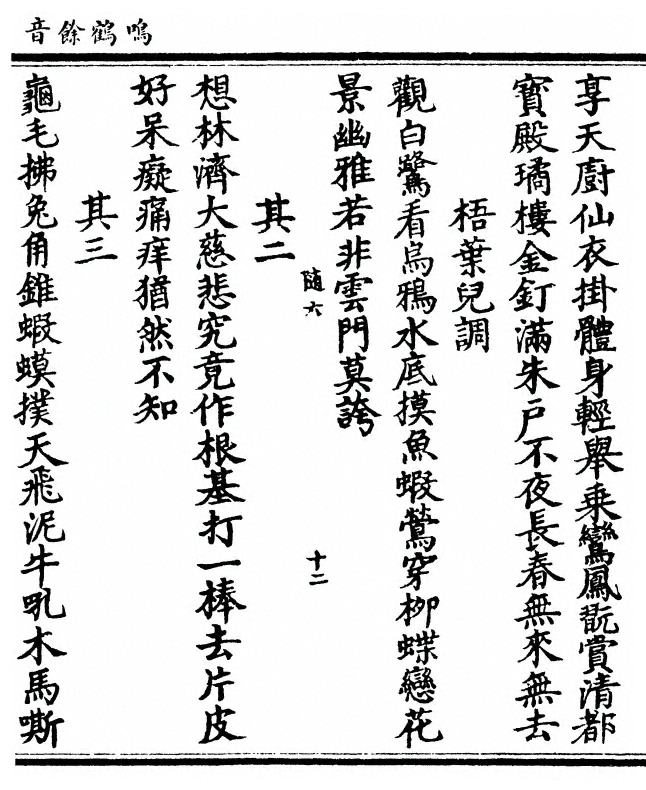 鳴鶴餘音
享天廚仙衣掛體身輕舉乘鸞鳳翫賞清都
寶殿璚樓金釘滿朱戶不夜長春無來無去
梧葉兒調
觀白鷺看烏鴉水底摸魚蝦鶯穿柳蝶戀花
景幽雅若非雲門莫誇
隨六
十二
其二
想林濟大慈悲究竟作根基打一棒去片皮
好呆癡痛痒猶然不知
其三
龜毛拂兔角錐蝦蟆撲天飛泥牛吼木馬嘶